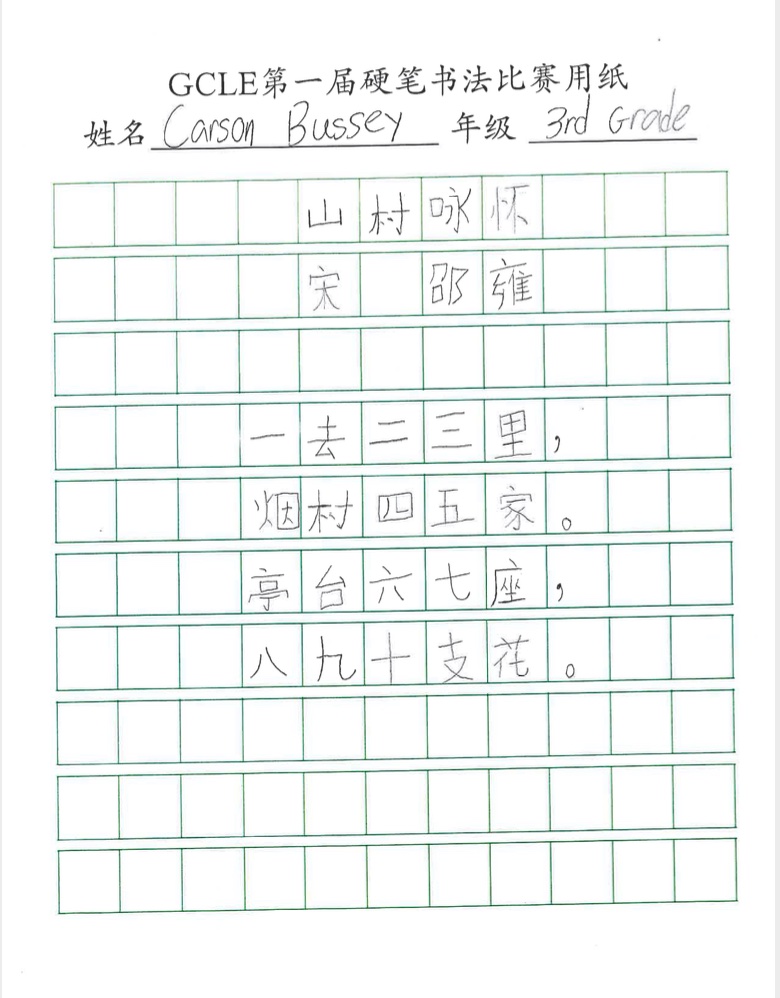 GCLE第一届硬笔书法比赛用纸
姓名 Carson Bussey 年级 3rd Grade
山村咏怀
宋 邵雍
一去二三里,
烟村四五家。
亭台六七座,
八九十支花。